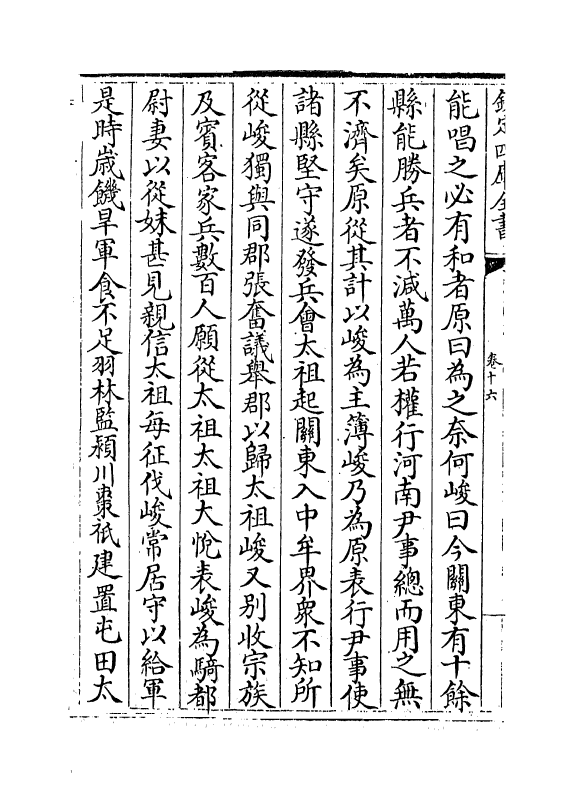 欽定四庫全書
卷十六
能唱之必有和者原曰為之奈何峻曰今關東有十餘
縣能勝兵者不減萬人若權行河南尹事總而用之無
不濟矣原從其計以峻為主簿峻乃為原表行尹事使
諸縣堅守遂發兵會太祖起關東入中牟界衆不知所
從峻獨與同郡張奮議舉郡以歸太祖峻又别收宗族
及賓客家兵數百人願從太祖太祖大悅表峻為騎都
尉妻以從妹甚見親信太祖每征伐峻常居守以給軍
是時歲饑旱軍食不足羽林監潁川棗祗建置屯田太